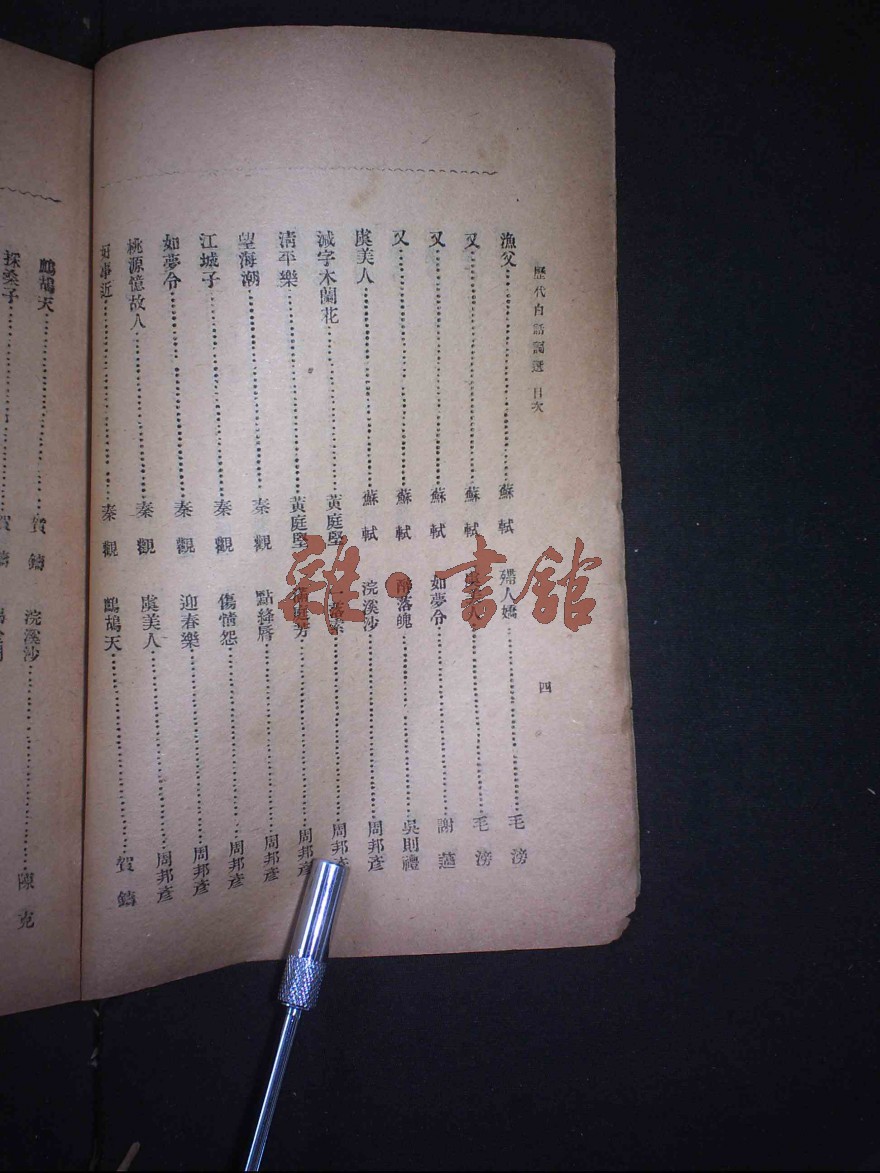 歷代白話詞選 目次
四
漁父 蘇軾
又 蘇軾
又 蘇軾
又 蘇軾
虞美人 蘇軾
減字木蘭花 黃庭堅
清平樂 黃庭堅
望海潮 秦觀
江城子 秦觀
如夢令 秦觀
桃源憶故人 秦觀
好事近 秦觀
殢人嬌 毛滂
虞美人 毛滂
如夢令 謝薖
醉落魄 吳則禮
浣溪沙 周邦彥
一落索 周邦彥
滿庭芳 周邦彥
點絳唇 周邦彥
傷情怨 周邦彥
迎春樂 周邦彥
虞美人 周邦彥
鷓鴣天 賀鑄
鷓鴣天 賀鑄
採桑子 賀鑄
浣溪沙 陳克
雜·書館